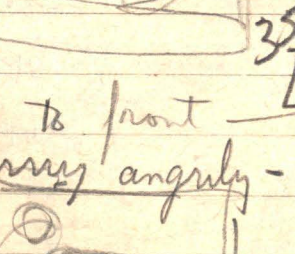 35
to front —
angrily -